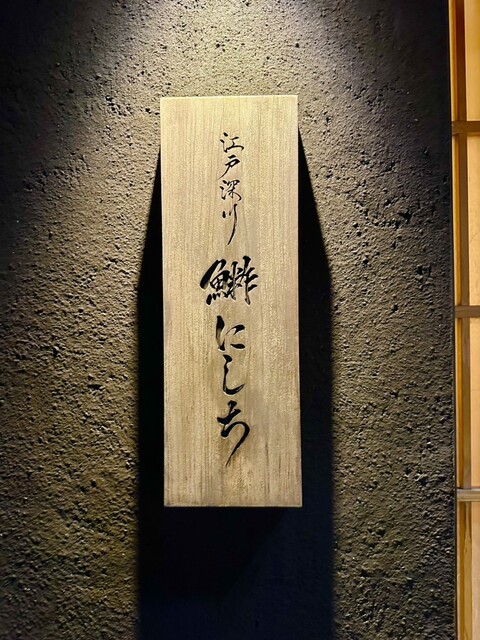 江戸深川
鮓にしち